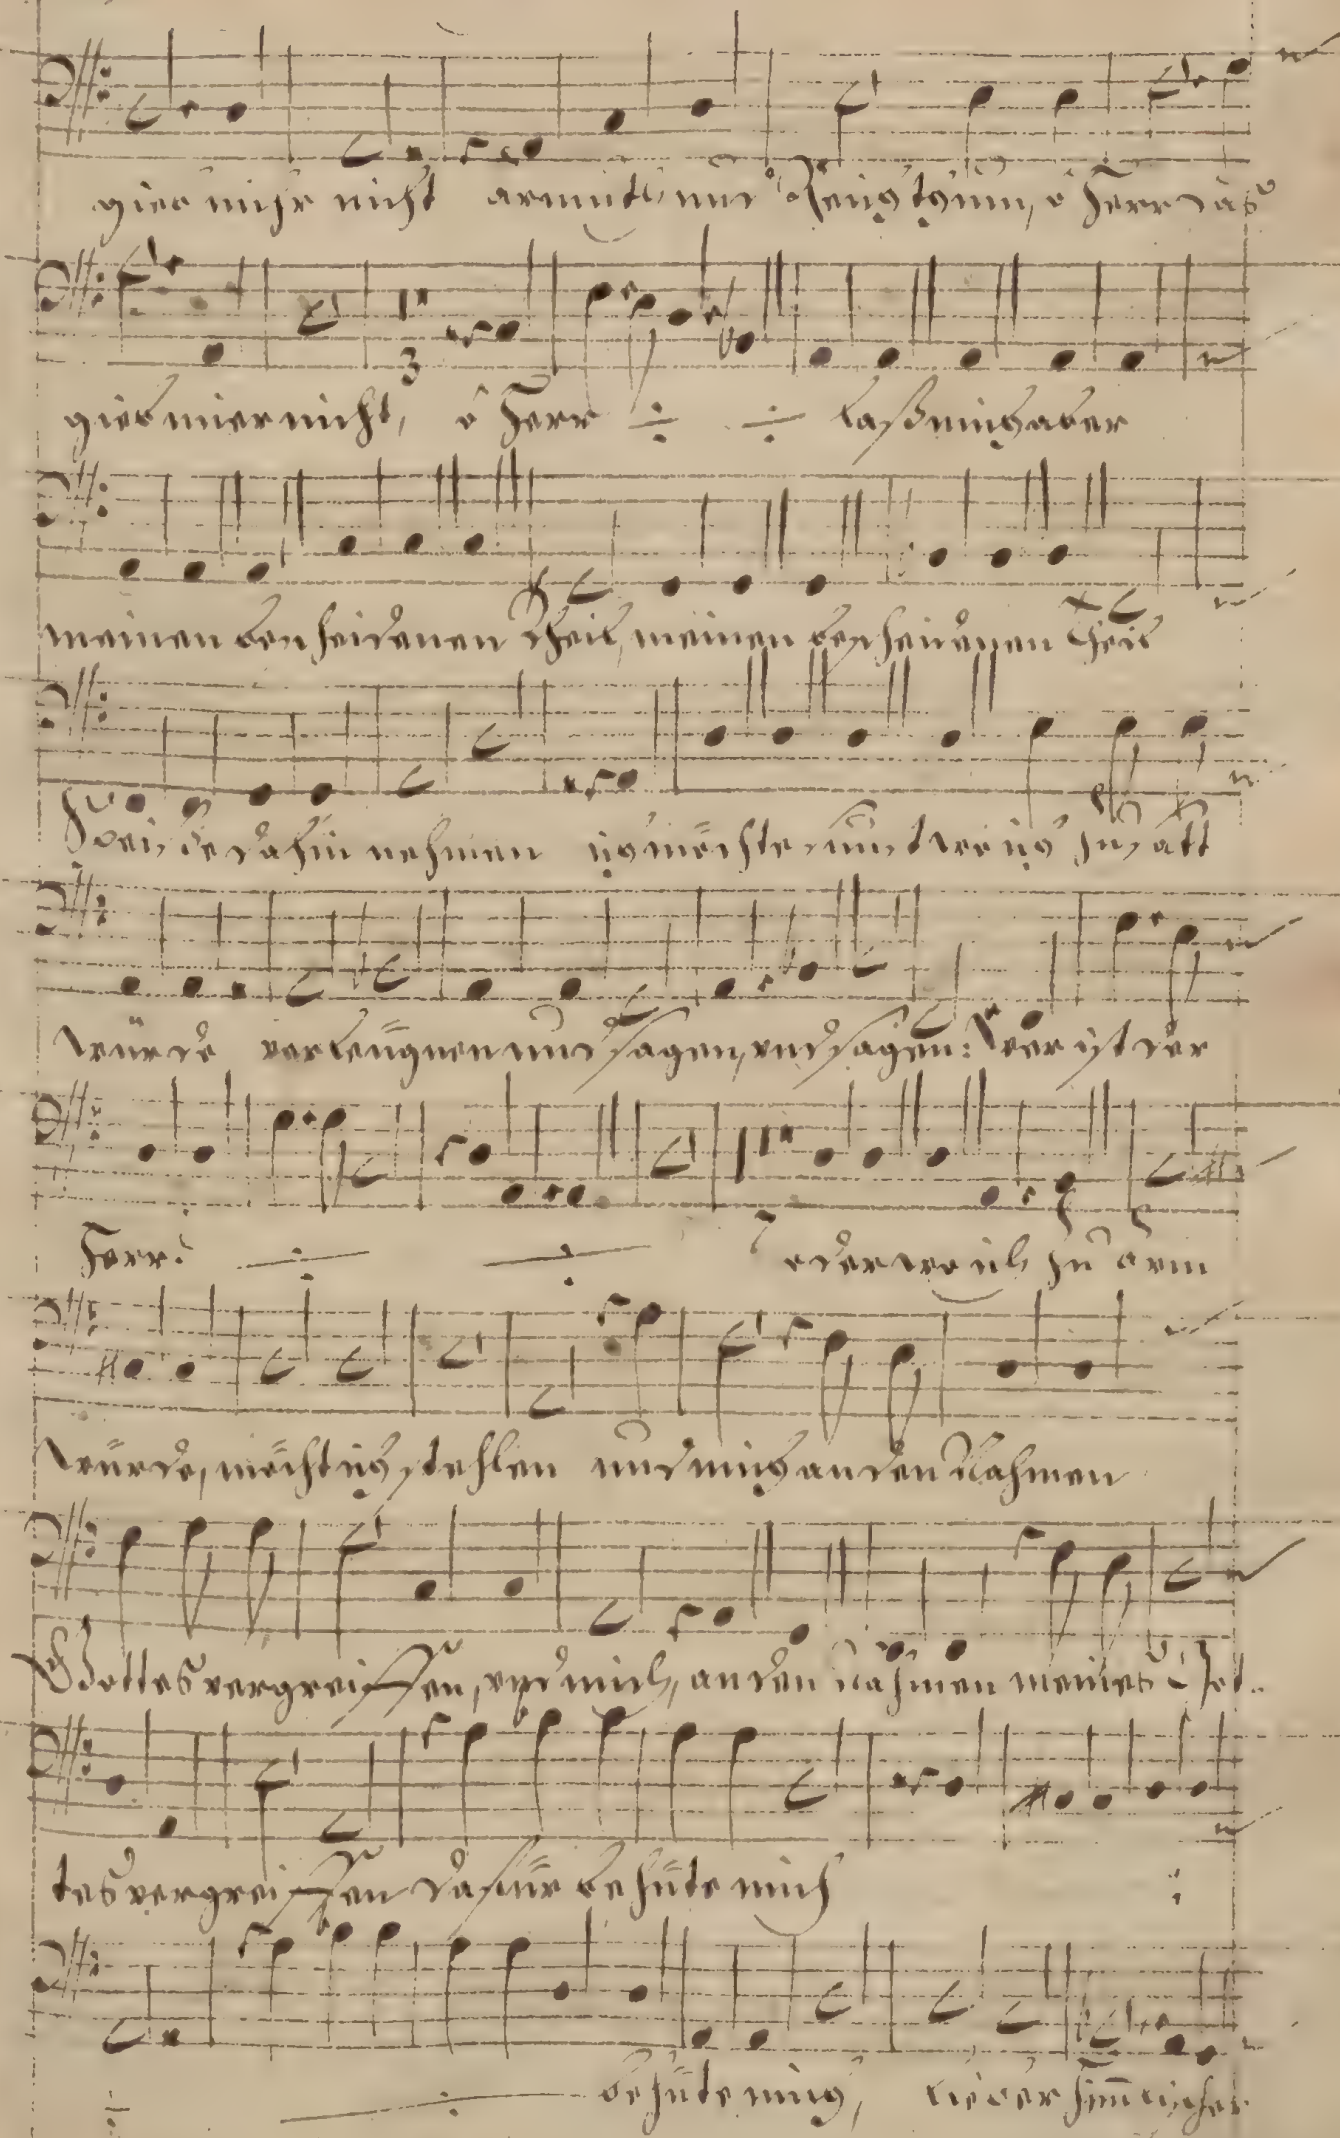 gieb mihr nicht armuth und Reichthum, o Herr das
gieb mier nicht, ô Herr ÷ ÷ laß mich aber
3
meinen bescheidenen theil, meinen bescheidenen theil
Speise dahin nehmen ich möchte sunst wo ich zu satt
würde verleugnen und sagen, und sagen: Wer ist der
Herr? ÷ ÷ oder wo ich zu arm
würde, möcht ich stehlen und mich an den Nahmen
Gottes vergreiffen, und mich, an den nahmen meines Got-
tes vergreiffen dafür behüte mich
÷ behüte mich, lieber himlischer